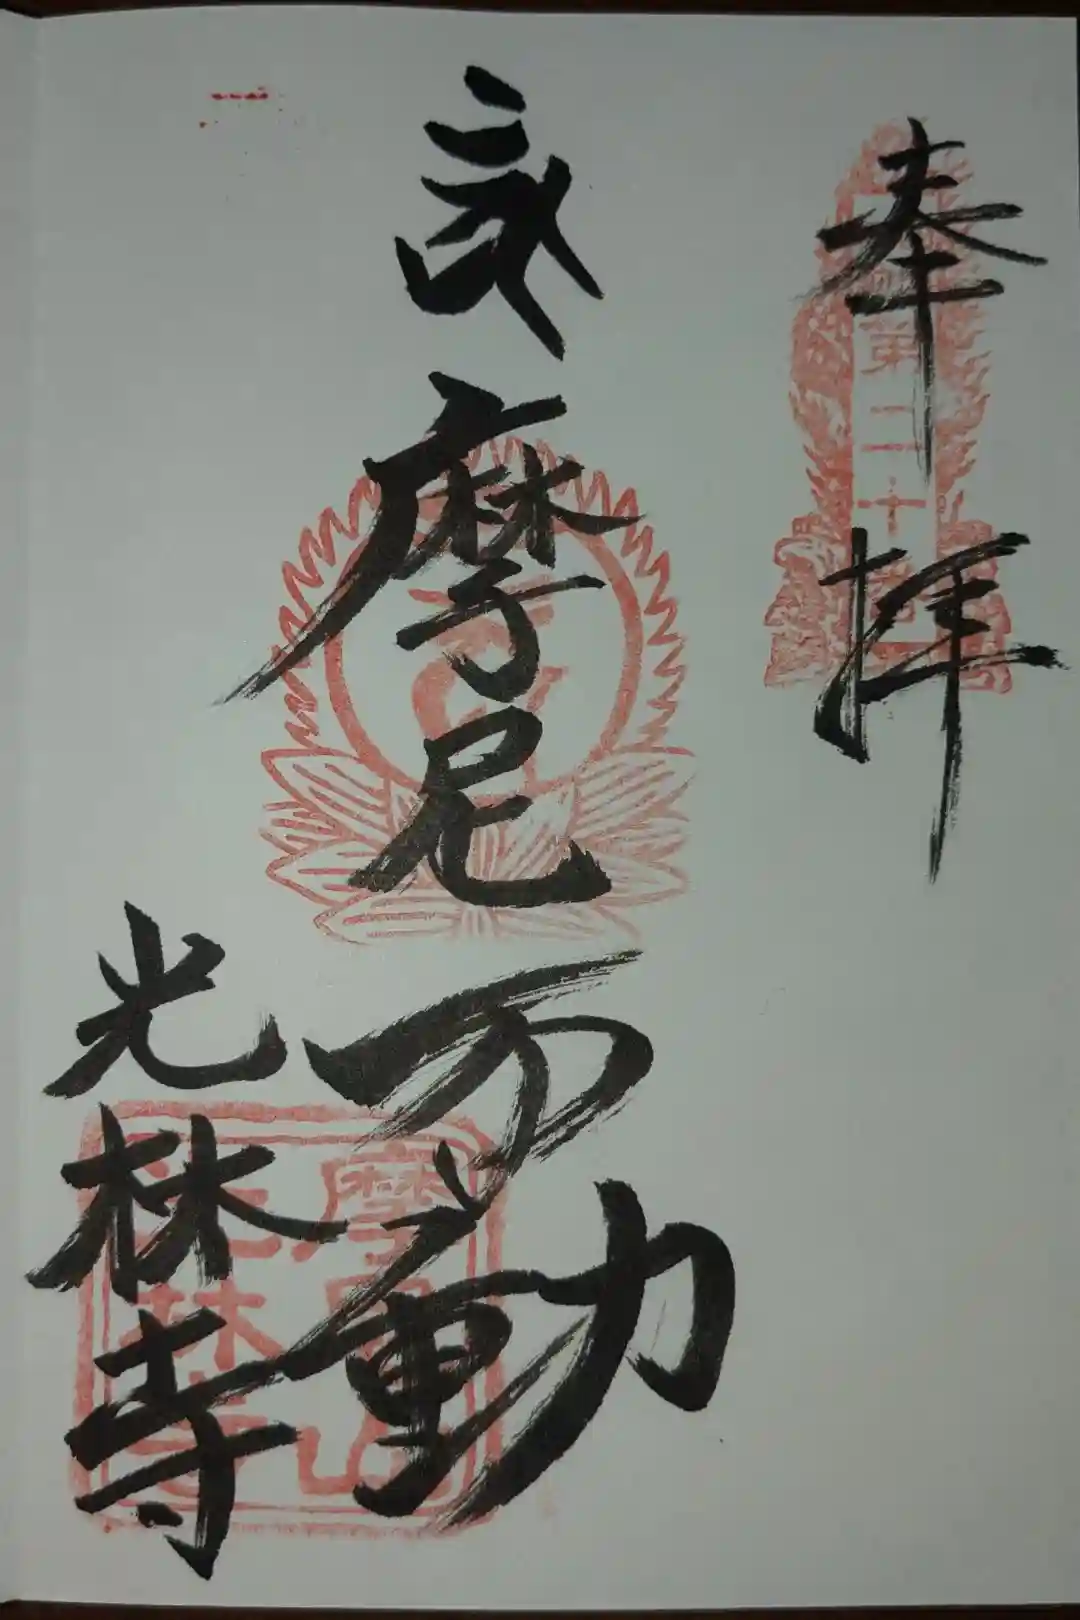 奉拝
摩尼不動
光林寺
第二十
摩尼山
光林寺